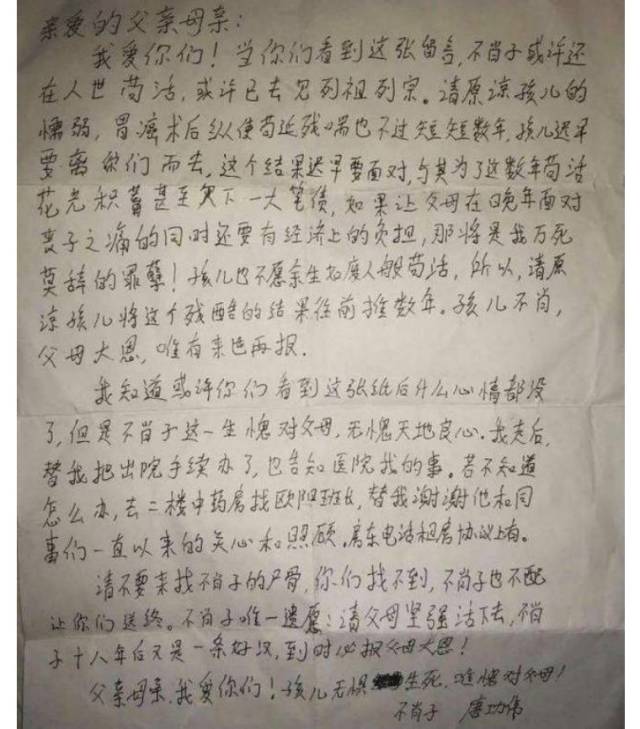 亲爱的父亲母亲：
我爱你们！当你们看到这张留言，不肖子或许还
在人世苟活，或许已去见列祖列宗。请原谅孩儿的
懦弱，胃癌术后纵使苟延残喘也不过短短数年，孩儿迟早
要离你们而去，这个结果迟早要面对，与其为了这数年苟活
花光积蓄甚至欠下一大笔债，如果让父母在晚年面对
丧子之痛的同时还要有经济上的负担，那将是我万死
莫辞的罪孽！孩儿也不愿余生如废人般苟活，所以，请原
谅孩儿将这个残酷的结果往前推数年。孩儿不肖，
父母大恩，唯有来世再报．
我知道或许你们看到这张纸后什么心情都没
了，但是不肖子这一生愧对父母，无愧天地良心．我走后，
替我把出院手续办了，也告知医院我的事。若不知道
怎么办，去二楼中药房找欧阳班长，替我谢谢他和同
事们一直以来的关心和照顾，房东电话租房协议上有。
请不要来找不肖子的尸骨，你们找不到，不肖子也不配
让你们送终。不肖子唯一遗愿：请父母坚强活下去，不肖
子十八年后又是一条好汉，到时必报父母大恩！
父亲母亲，我爱你们！孩儿无惧生死，唯愧对父母！
不肖子 唐功伟